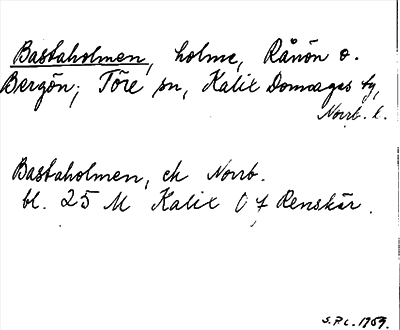 Bastaholmen, holme, Rånön o.
Bergön; Töre sn, Kalix Domsagas tg,
Norrb. l.
Bastaholmen, ek Norrb.
bl. 25 M Kalix O f Renskär.
S.P.L. 1959.